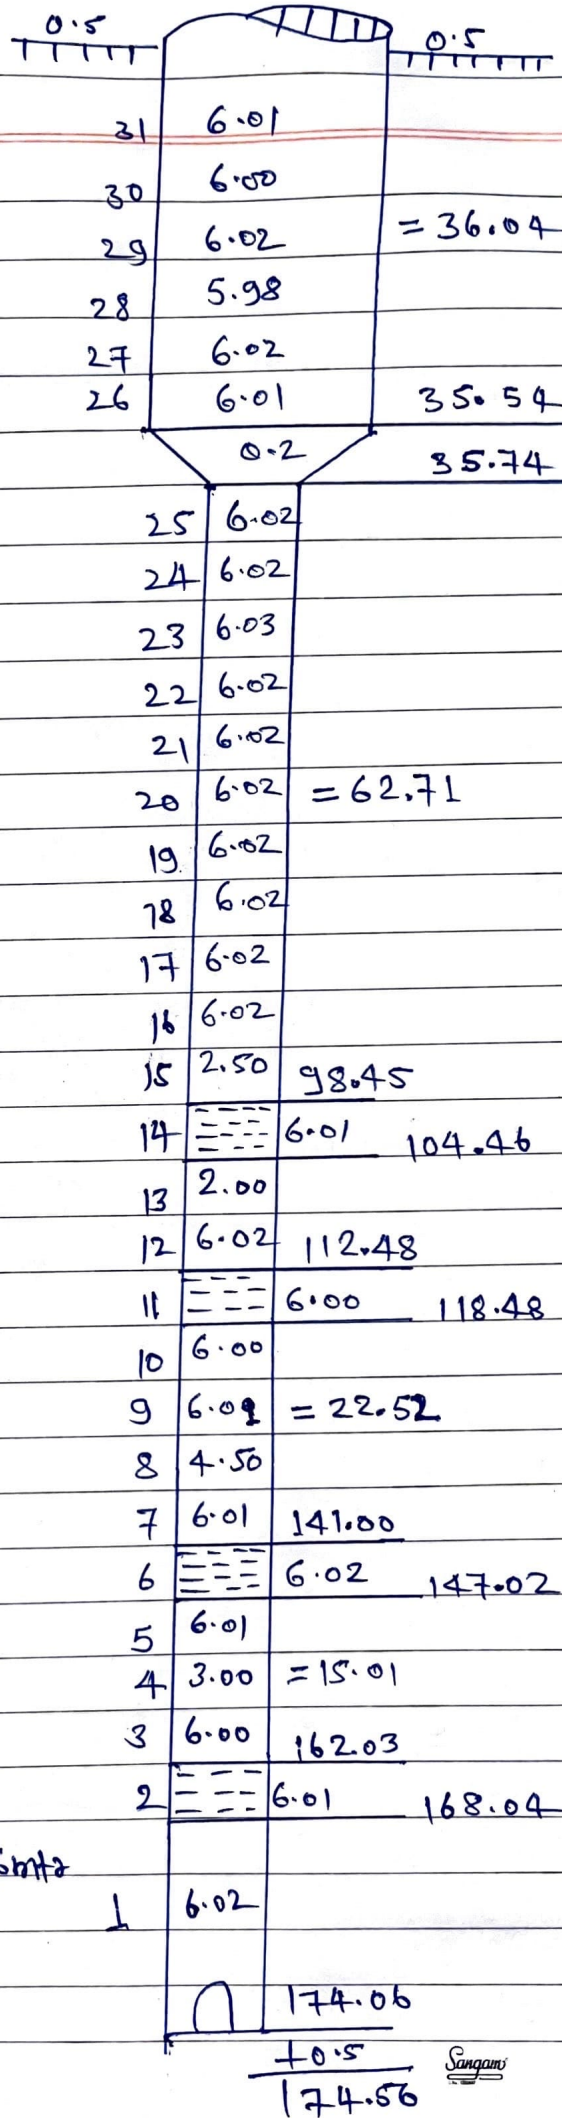 0.5 0.5
31 6.01
30 6.00
29 6.02 = 36.04
28 5.98
27 6.02
26 6.01 35.54
0.2 35.74
25 6.02
24 6.02
23 6.03
22 6.02
21 6.02
20 6.02 = 62.71
19 6.02
18 6.02
17 6.02
16 6.02
15 2.50 98.45
14 6.01 104.46
13 2.00
12 6.02 112.48
11 6.00 118.48
10 6.00
9 6.01 = 22.52
8 4.50
7 6.01 141.00
6 6.02 147.02
5 6.01
4 3.00 = 15.01
3 6.00 162.03
2 6.01 168.04
1 6.02
174.06
+0.5
174.56
Sangam